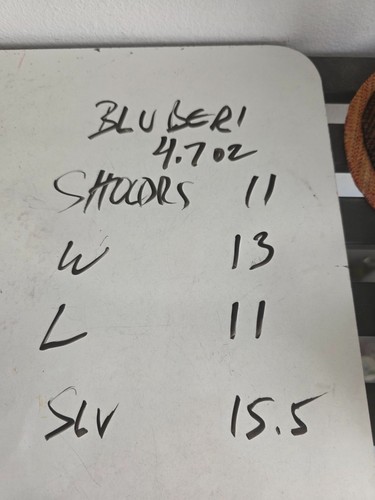 BLUBERI
4.7 oz
SHOLDRS 11
W 13
L 11
SLV 15.5